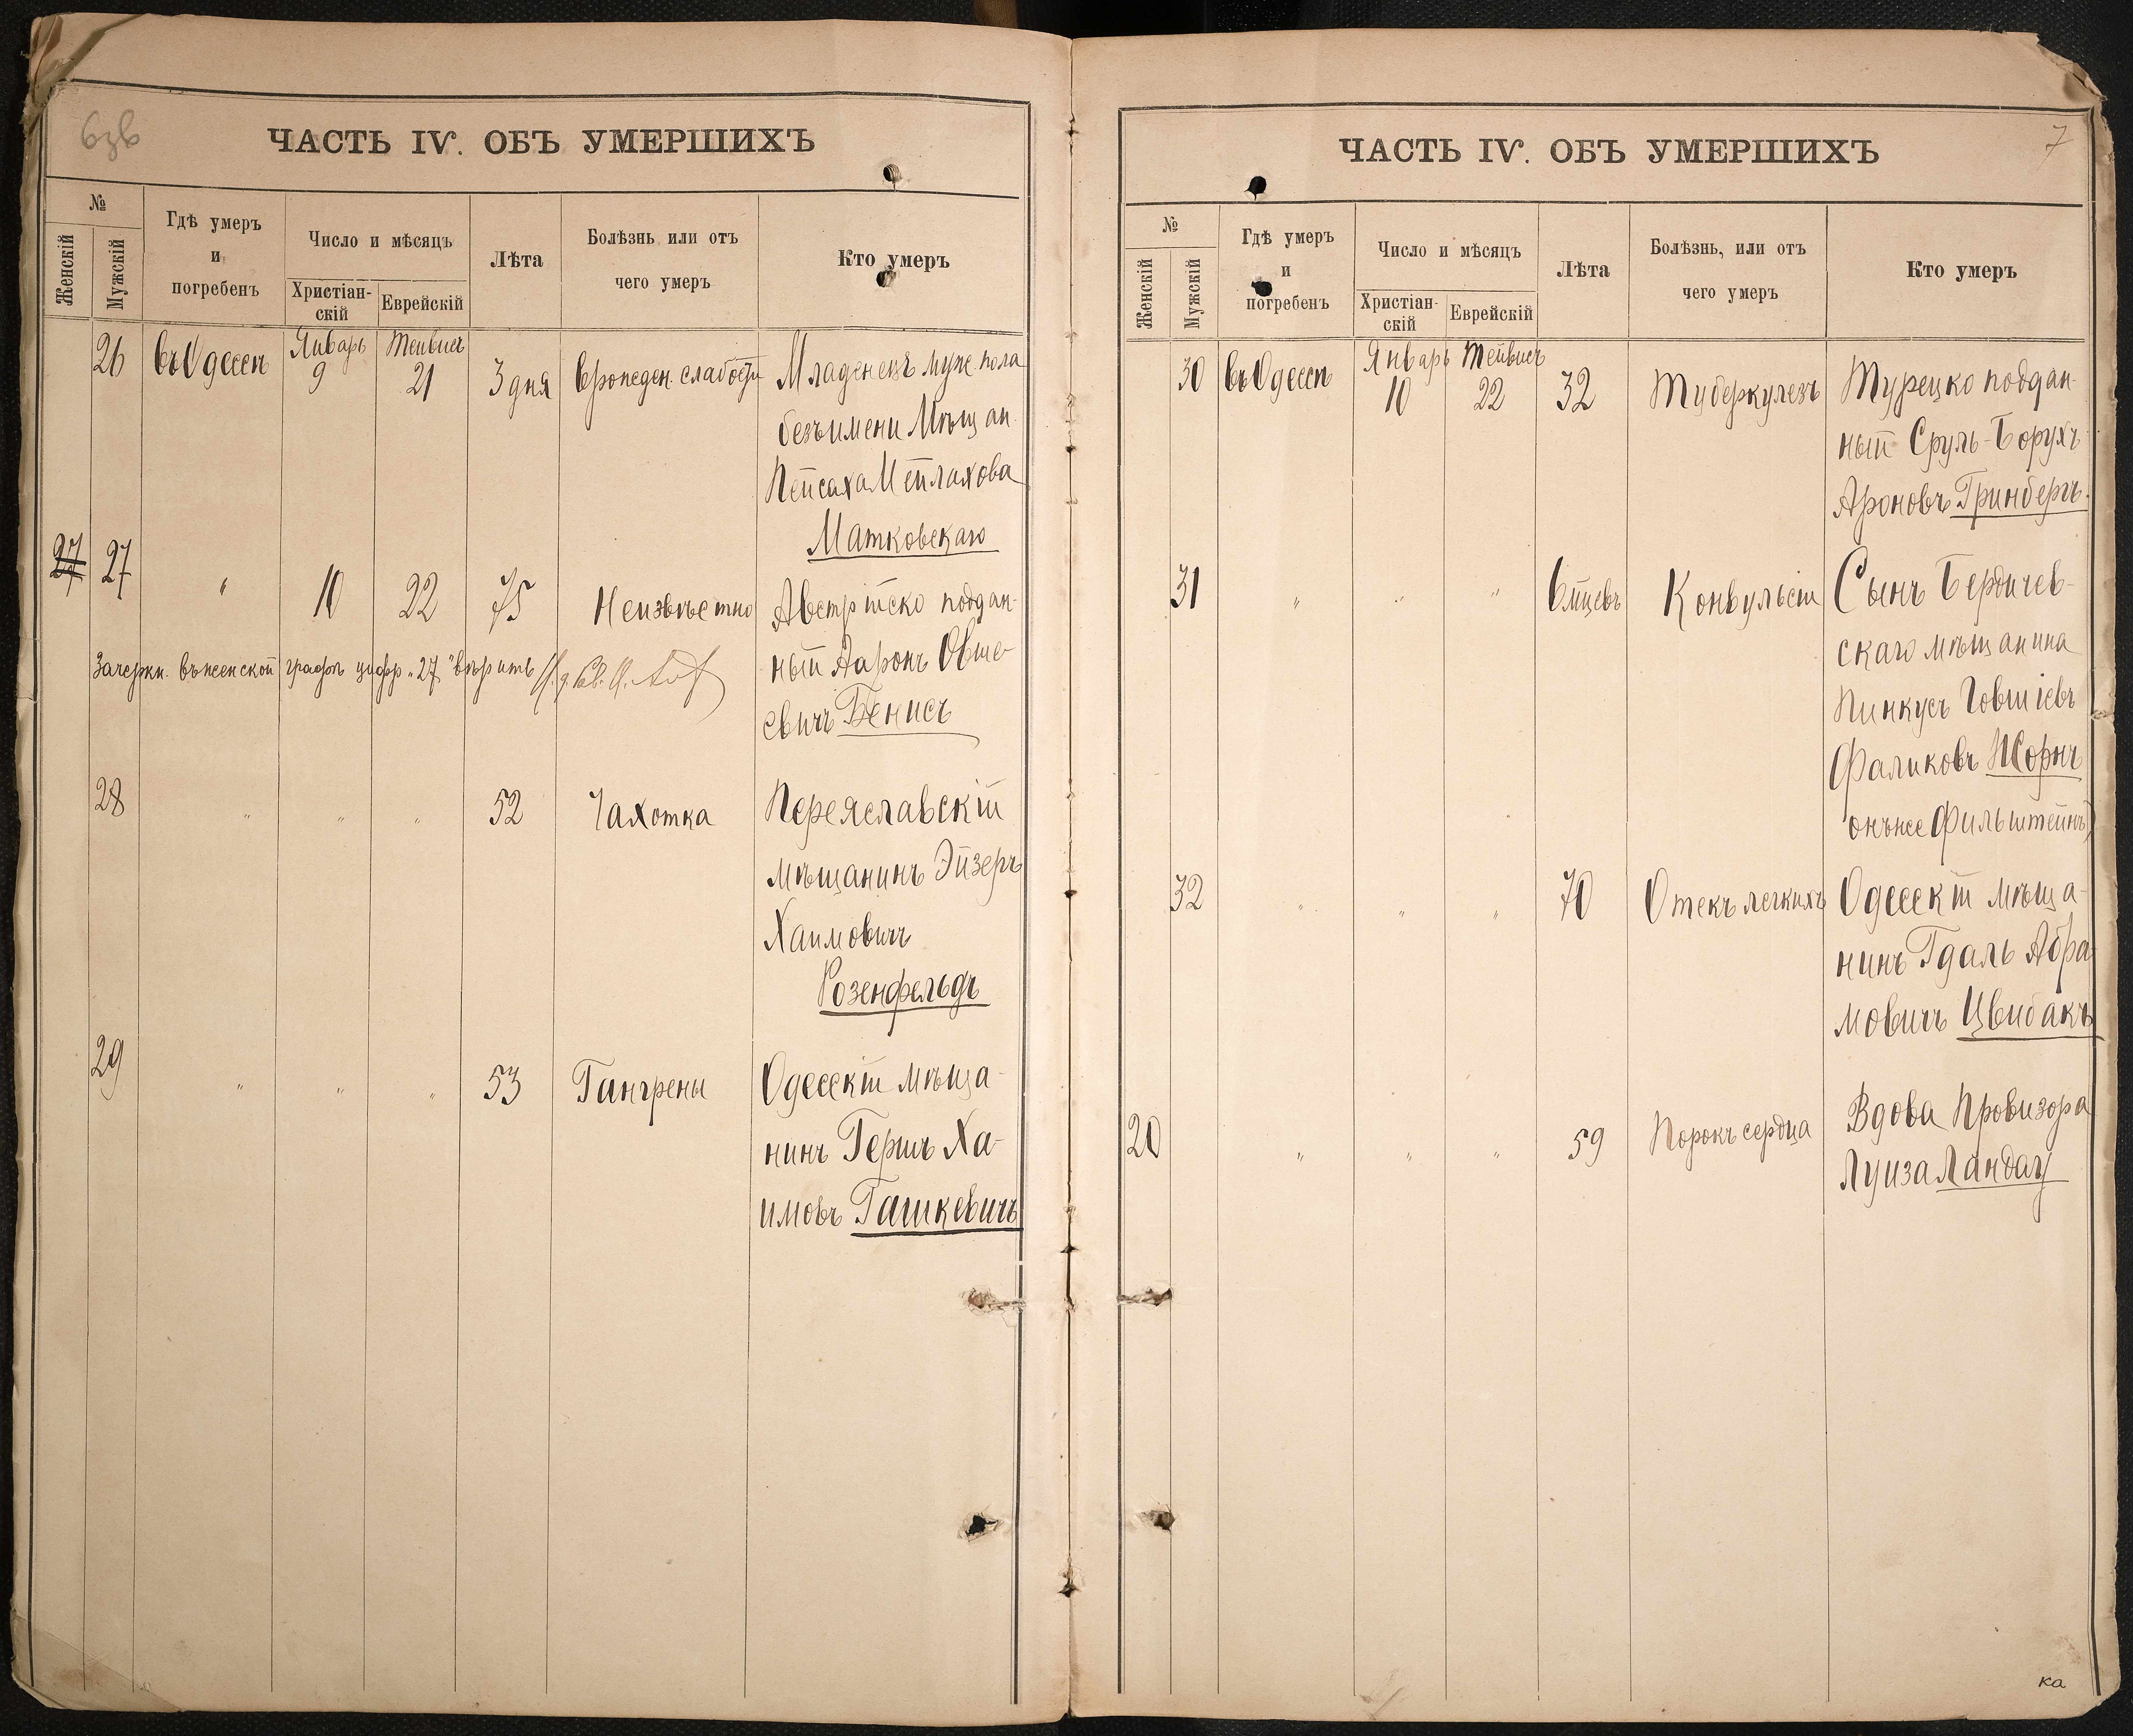 6зв
ЧАСТЬ IV. ОБЪ УМЕРШИХЪ
№
Женскій
Мужскій
Гдѣ умеръ
и
погребенъ
Число и мѣсяцъ
Христіан-
скій
Еврейскій
Лѣта
Болѣзнь, или отъ
чего умеръ
Кто умеръ
26 въ Одессѣ Январь 9 Тейвисъ 21 3 дня врожден. слабости Младенецъ муж. пола
безъ имени Мѣщан.
Пейсаха Мейлахова
Матковскаго
27 27 " 10 22 75 Неизвѣстно Австрійско поддан-
ный Ааронъ Овше-
евичъ Бенисъ
Зачеркн. въ женской графѣ цифр. "27" вѣрить
28 " " " 52 Чахотка Переяславскій
мѣщанинъ Эйзеръ
Хаимовичъ
Розенфельдъ
29 " " " 53 Гангрены Одесскій мѣща-
нинъ Гершъ Ха-
имовъ Гашкевичъ
7
ЧАСТЬ IV. ОБЪ УМЕРШИХЪ
№
Женскій
Мужскій
Гдѣ умеръ
и
погребенъ
Число и мѣсяцъ
Христіан-
скій
Еврейскій
Лѣта
Болѣзнь, или отъ
чего умеръ
Кто умеръ
30 въ Одессѣ Январь 10 Тейвисъ 22 32 Туберкулезъ Турецко поддан-
ный Сруль-Борухъ
Ароновъ Гринбергъ.
31 " " " 6 мцевъ Конвульсіи Сынъ Бердичев-
скаго мѣщанина
Пинкусъ Іовшіевъ
Фаликовъ Жорнъ
онъ же Фильштейнъ)
32 " " " 70 Отекъ легкихъ Одесскій мѣща-
нинъ Гдаль Абра
мовичъ Цвибакъ
20 " " " 59 Порокъ сердца Вдова Провизора
Луиза Ландау
ка